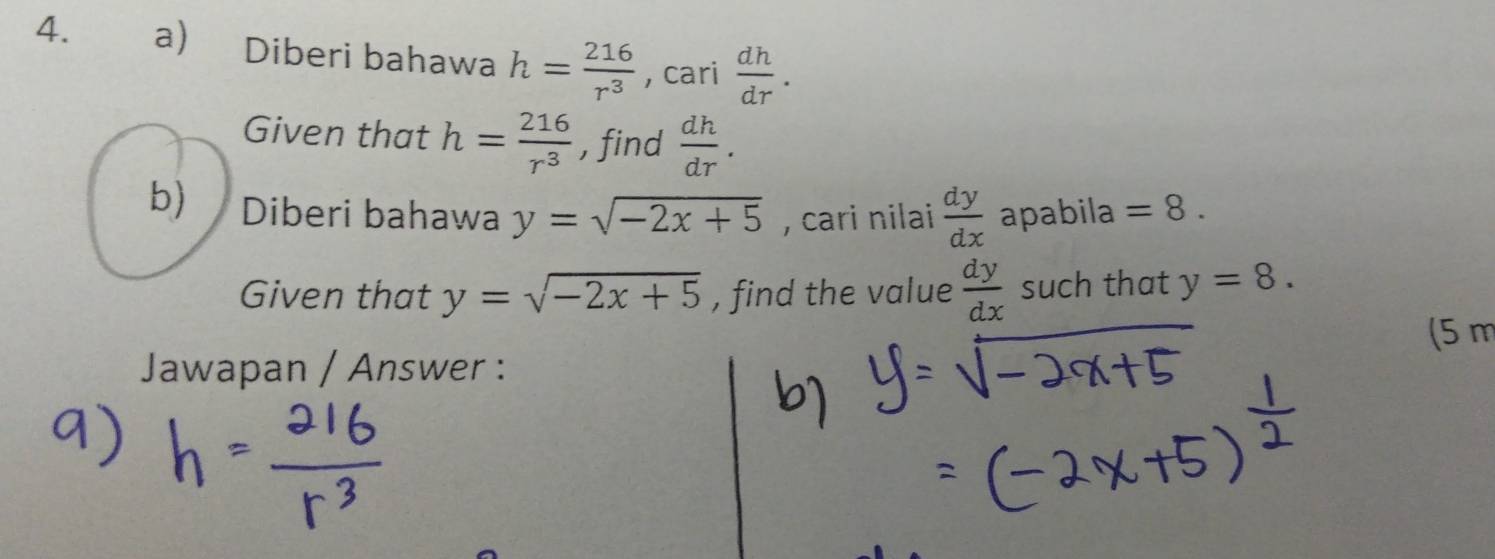 4. a) Diberi bahawa h = 216/r³ , cari dh/dr .
Given that h = 216/r³ , find dh/dr .
b) Diberi bahawa y = √(−2x + 5) , cari nilai dy/dx apabila = 8 .
Given that y = √(−2x + 5) , find the value dy/dx such that y = 8 .
(5 m
Jawapan / Answer :
a) h = 216/r³
b) y = √(−2x+5)
= (−2x+5)^(1/2)